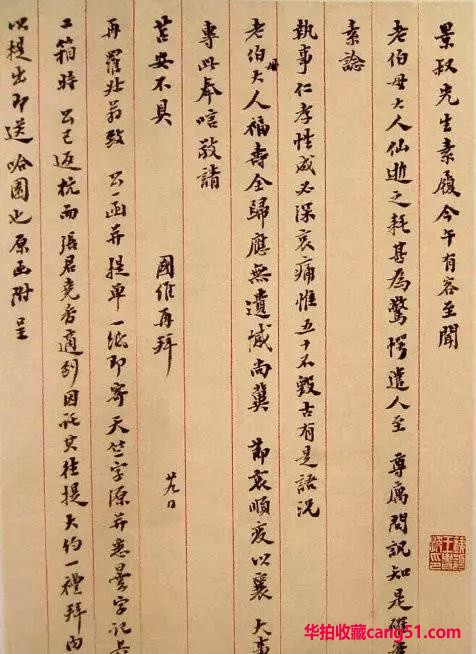 景叔先生素履今午有客至聞
老伯母大人仙逝之耗甚為驚愕遣人至 尊寓問訊知是確
素諗
執事仁孝性成必深哀痛惟五十不毀古有是語況
老伯母大人福壽全歸應無遺憾尚冀 節哀順變以襄 大事
專此奉唁敬請
苫安不具
國維再拜 廿九日
再 羅叔翁致 公一函并提單一紙即寄天竺字源并悉曇字記
工箱時 公已返杭而張君堯香適到因託其往提大約一禮拜內
以提出即送哈園也原函附呈
华拍收藏cang51.com